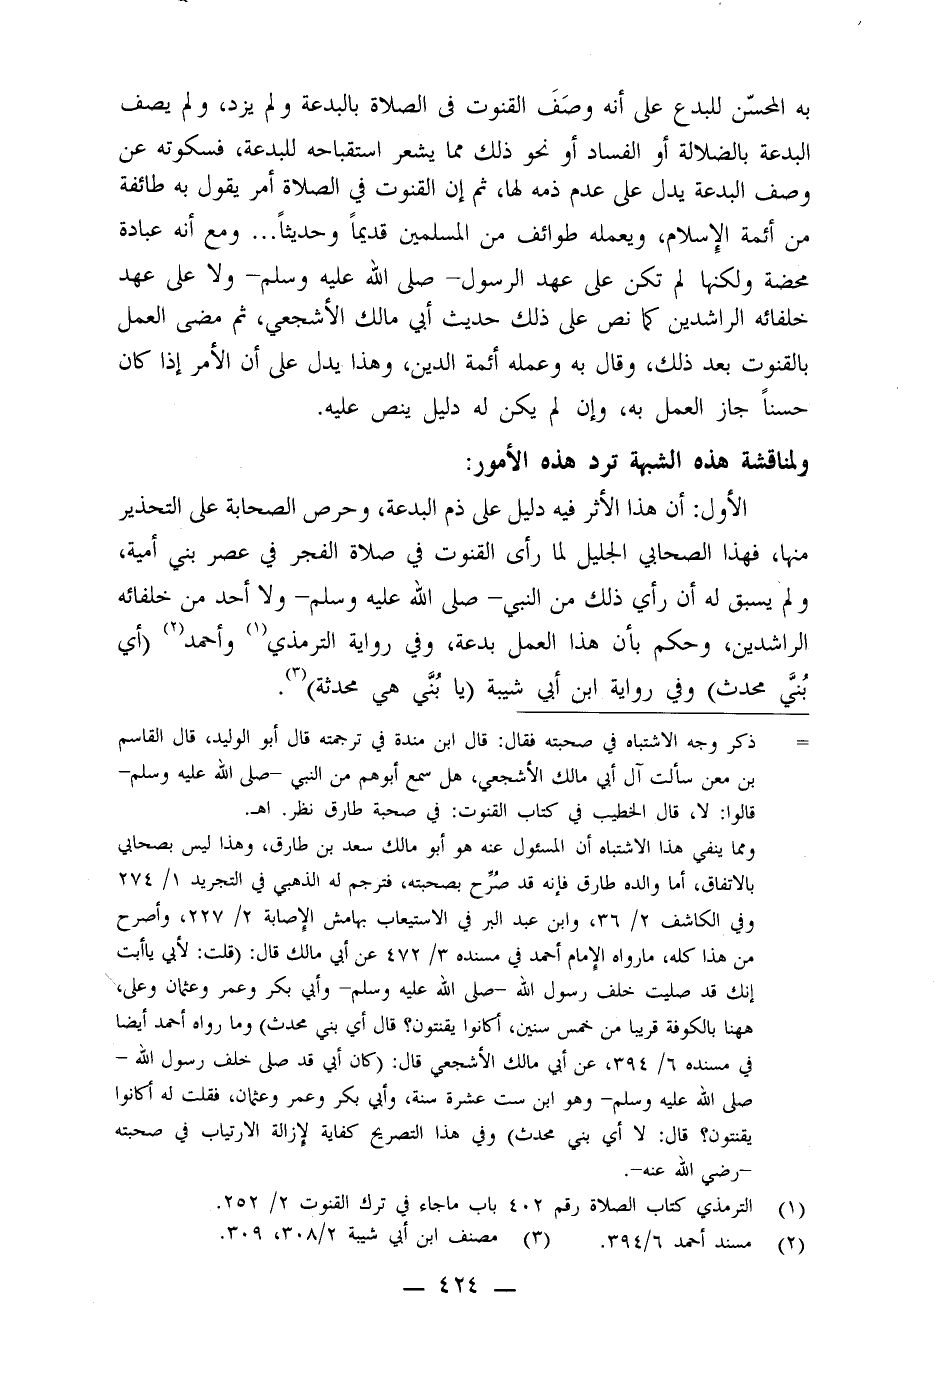 به المحسّن للبدع على أنه وصَفَ القنوت فى الصلاة بالبدعة ولم يزد، ولم يصف
البدعة بالضلالة أو الفساد أو نحو ذلك مما يشعر استقباحه للبدعة، فسكوته عن
وصف البدعة يدل على عدم ذمه لها، ثم إن القنوت في الصلاة أمر يقول به طائفة
من أئمة الإسلام، ويعمله طوائف من المسلمين قديماً وحديثاً... ومع أنه عبادة
محضة ولكنها لم تكن على عهد الرسول– صلى الله عليه وسلم– ولا على عهد
خلفائه الراشدين كما نص على ذلك حديث أبي مالك الأشجعي، ثم مضى العمل
بالقنوت بعد ذلك، وقال به وعمله أئمة الدين، وهذا يدل على أن الأمر إذا كان
حسناً جاز العمل به، وإن لم يكن له دليل ينص عليه.
ولمناقشة هذه الشبهة ترد هذه الأمور:
الأول: أن هذا الأثر فيه دليل على ذم البدعة، وحرص الصحابة على التحذير
منها، فهذا الصحابي الجليل لما رأى القنوت في صلاة الفجر في عصر بني أمية،
ولم يسبق له أن رأي ذلك من النبي– صلى الله عليه وسلم– ولا أحد من خلفائه
الراشدين، وحكم بأن هذا العمل بدعة، وفي رواية الترمذي(١) وأحمد(٢) (أي
بُنيَّ محدث) وفي رواية ابن أبي شيبة (يا بُنَّي هي محدثة)(٣).
= ذكر وجه الاشتباه في صحبته فقال: قال ابن مندة في ترجمته قال أبو الوليد، قال القاسم
بن معن سألت آل أبي مالك الأشجعي، هل سمع أبوهم من النبي –صلى الله عليه وسلم–
قالوا: لا، قال الخطيب في كتاب القنوت: في صحبة طارق نظر. اهـ.
ومما ينفي هذا الاشتباه أن المسئول عنه هو أبو مالك سعد بن طارق، وهذا ليس بصحابي
بالاتفاق، أما والده طارق فإنه قد صُرِّح بصحبته، فترجم له الذهبي في التجريد ١/ ٢٧٤
وفي الكاشف ٢/ ٣٦، وابن عبد البر في الاستيعاب بهامش الإصابة ٢/ ٢٢٧، وأصرح
من هذا كله، مارواه الإمام أحمد في مسنده ٣/ ٤٧٢ عن أبي مالك قال: (قلت: لأبي ياأبت
إنك قد صليت خلف رسول الله –صلى الله عليه وسلم– وأبي بكر وعمر وعثمان وعلى،
ههنا بالكوفة قريبا من خمس سنين، أكانوا يقنتون؟ قال أي بني محدث) وما رواه أحمد أيضا
في مسنده ٦/ ٣٩٤، عن أبي مالك الأشجعي قال: (كان أبي قد صلى خلف رسول الله –
صلى الله عليه وسلم– وهو ابن ست عشرة سنة، وأبي بكر وعمر وعثمان، فقلت له أكانوا
يقنتون؟ قال: لا أي بني محدث) وفي هذا التصريح كفاية لإزالة الارتياب في صحبته
–رضي الله عنه–.
(١) الترمذي كتاب الصلاة رقم ٤٠٢ باب ماجاء في ترك القنوت ٢/ ٢٥٢.
(٢) مسند أحمد ٣٩٤/٦. (٣) مصنف ابن أبي شيبة ٣٠٨/٢، ٣٠٩.
— ٤٢٤ —